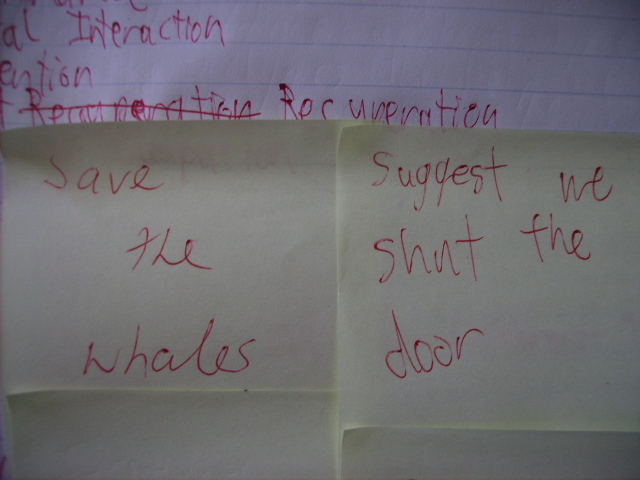 al Interaction
ention
Recuperation
Save
the
whales
Suggest we
shut the
door